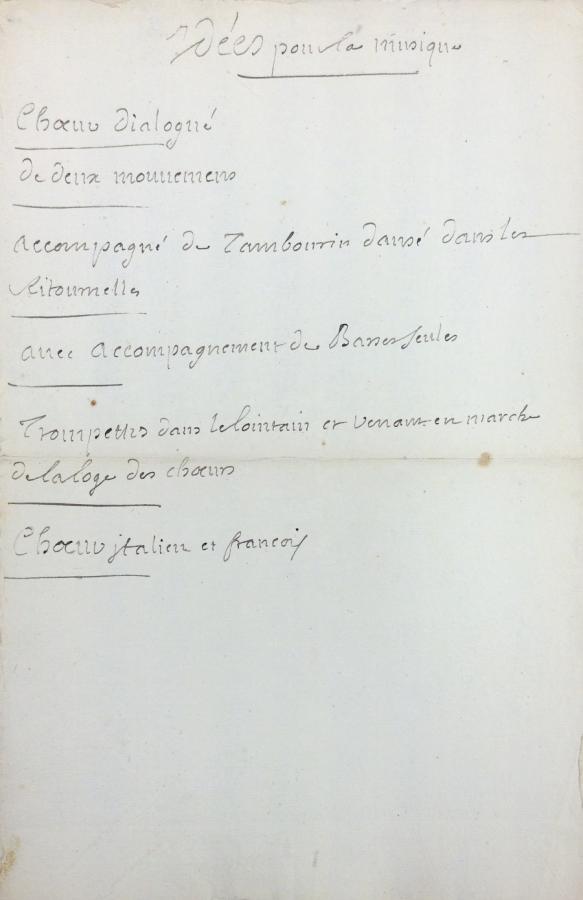 Idées pour la musique
Chœur dialogué
de deux mouuemens
accompagné de Tambourin dansé dans les
Ritournelles
auec accompagnement de Basses seules
Trompettes dans le lointain et venant en marche
de la loge des chœurs
Chœur jtalien et francois